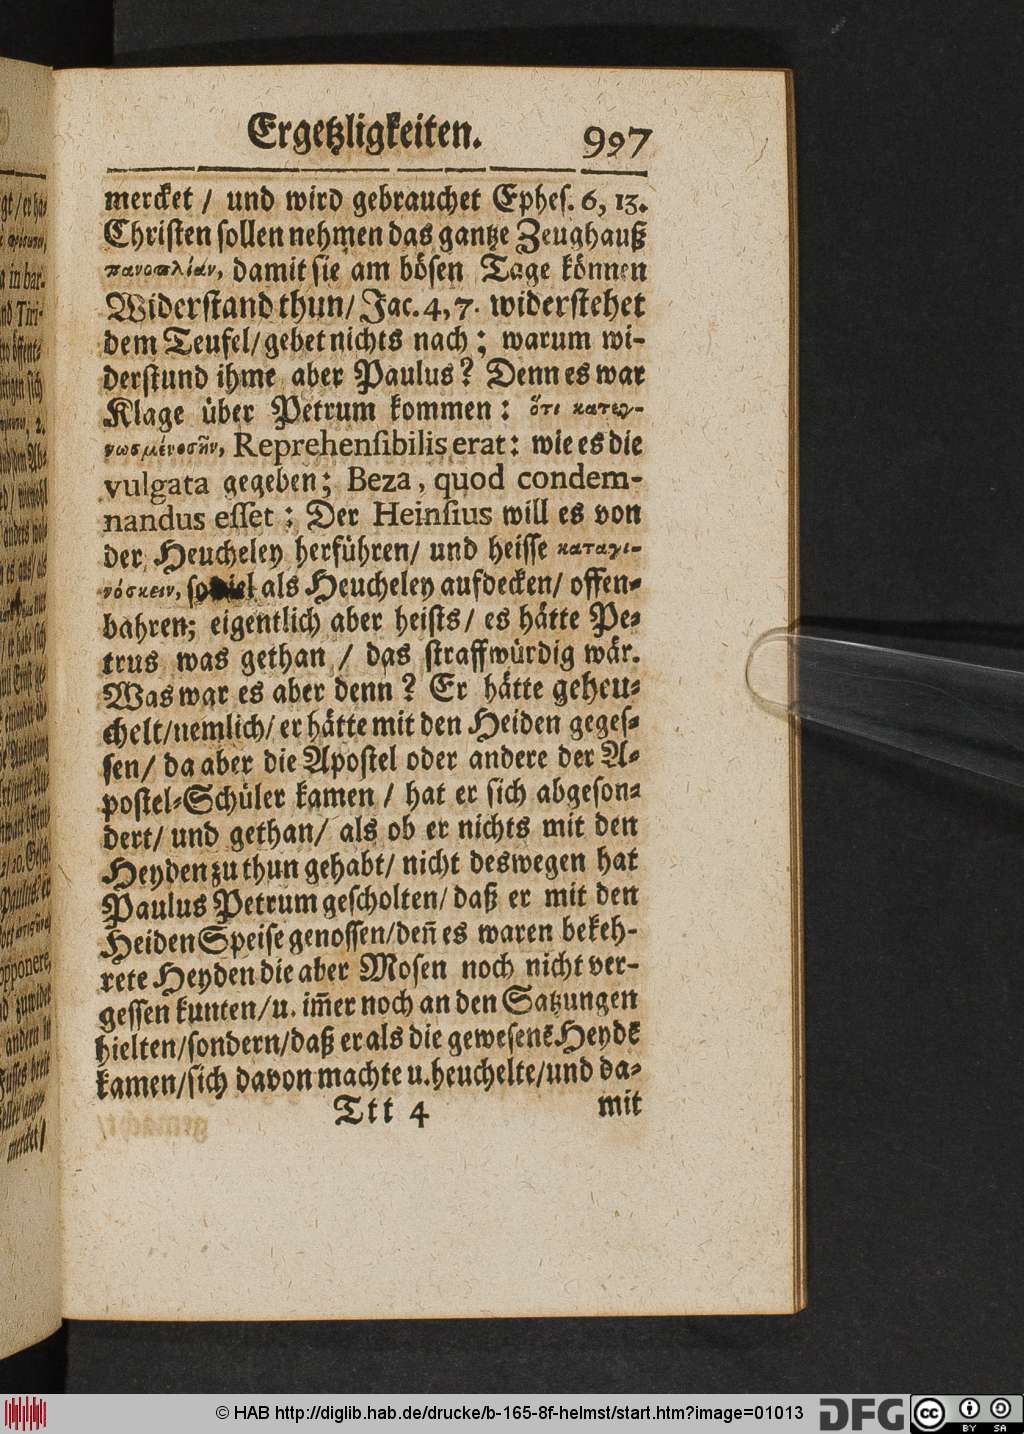 Ergetzligkeiten. 997
mercket / und wird gebrauchet Ephes. 6, 13.
Christen sollen nehmen das gantze Zeughauß
πανοπλίαν, damit sie am bösen Tage können
Widerstand thun/ Jac. 4, 7. widerstehet
dem Teufel/ gebet nichts nach; warum wi-
derstund ihme aber Paulus? Denn es war
Klage über Petrum kommen: ὅτι κατεγ-
νωσμένος ἦν, Reprehensibilis erat: wie es die
vulgata gegeben; Beza, quod condem-
nandus esset: Der Heinsius will es von
der Heucheley herführen/ und heisse καταγι-
νόσκειν, so viel als Heucheley aufdecken/ offen-
bahren; eigentlich aber heists/ es hätte Pe-
trus was gethan / das straffwürdig wär.
Was war es aber denn? Er hätte geheu-
chelt/ nemlich/ er hätte mit den Heiden geges-
sen/ da aber die Apostel oder andere der A-
postel-Schüler kamen / hat er sich abgeson-
dert/ und gethan/ als ob er nichts mit den
Heyden zu thun gehabt/ nicht deswegen hat
Paulus Petrum gescholten/ daß er mit den
Heiden Speise genossen/ deñ es waren bekeh-
rete Heyden die aber Mosen noch nicht ver-
gessen kunten/ u. im̃er noch an den Satzungen
hielten/ sondern/ daß er als die gewesenẽ Heydẽ
kamen/ sich davon machte u. heuchelte/ und da-
Ttt 4 mit
© HAB http://diglib.hab.de/drucke/b-165-8f-helmst/start.htm?image=01013
DFG
cc BY SA